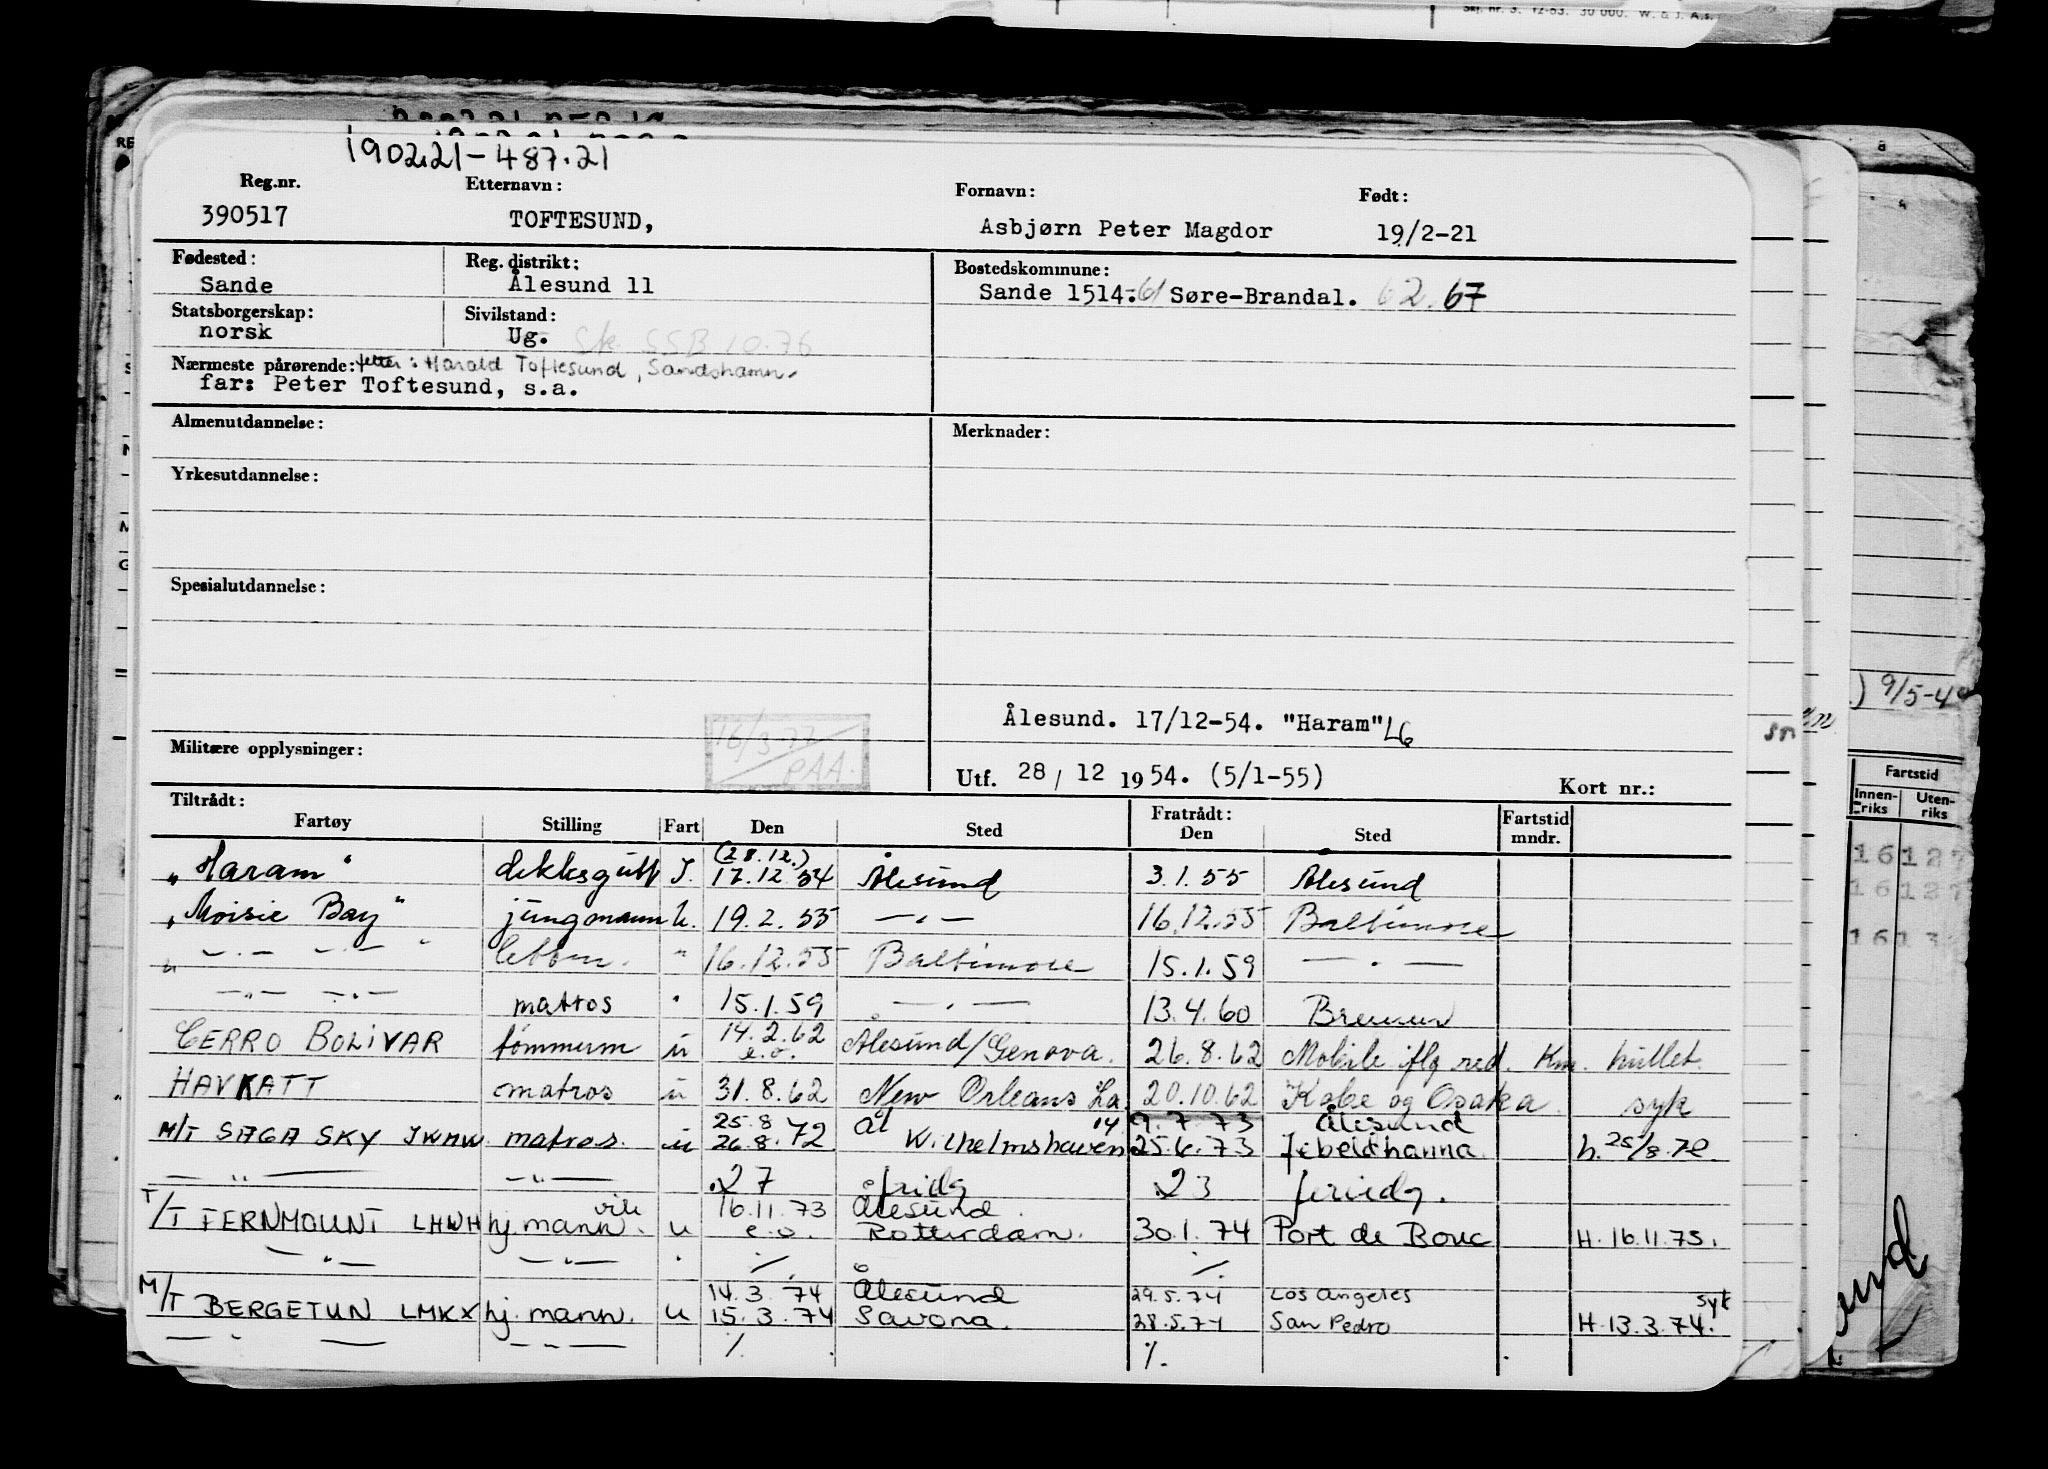 Skj. nr. 3. 12-53. 30 000. W. & J. A.s.
190221-487.21
Reg.nr. Etternavn: Fornavn: Født:
390517 TOFTESUND, Asbjørn Peter Magdor 19/2-21
Fødested: Reg. distrikt: Bostedskommune:
Sande Ålesund 11 Sande 1514: 61 Søre-Brandal. 62. 67
Statsborgerskap: Sivilstand:
norsk Ug. Sk. SSB 10.76
Nærmeste pårørende: fetter: Harald Toftesund, Sandshamn.
far: Peter Toftesund, s.a.
Almenutdannelse: Merknader:
Yrkesutdannelse:
Spesialutdannelse:
Ålesund. 17/12-54. "Haram" LG
16/3-77 PAA.
Militære opplysninger:
Utf. 28/12 1954. (5/1-55) Kort nr.:
Tiltrådt: Fratrådt:
Fartøy Stilling Fart Den Sted Den Sted Fartstid mndr.
(28.12.)
„Haram" dekksgutt I. 17.12.54 Ålesund 3.1.55 Ålesund
„Moisie Bay" jungmann U. 19.2.55 —"— 16.12.55 Baltimore
„ —"— —"— " lettm. " 16.12.55 Baltimore 15.1.59 —"—
—"— —"— matros " 15.1.59 —"— 13.4.60 Bremen
14.2.62
CERRO BOLIVAR tømmerm u e.o. Ålesund/Genova. 26.8.62 Mobile iflg red. Km. hullet.
HAVKATT matros u 31.8.62 New Orleans La. 20.10.62 Kobe og Osaka syk
25.8 Ål 14 9.7.73 Ålesund
M/T SAGA SKY JWMW matros. u 26.8.72 Wilhelmshaven 25.6.73 Jebeldhanna h. 25/8.72
—"— —"— .27 fridg .23 feriedg.
vik 16.11.73 Ålesund.
T/T FERNMOUNT LHWH hj.mann. u e.o. Rotterdam. 30.1.74 Port de Bouc H. 16.11.73.
—"— —"— " ./. ./.
14.3.74 Ålesund 29.5.74 Los Angeles syk
M/T BERGETUN LMKX hj.mann. u 15.3.74 Savona. 28.5.74 San Pedro H.13.3.74.
—"— —"— ./. ./.
9/5-4
Fartstid
Innenriks Utenriks
16 127
16 127
16 13